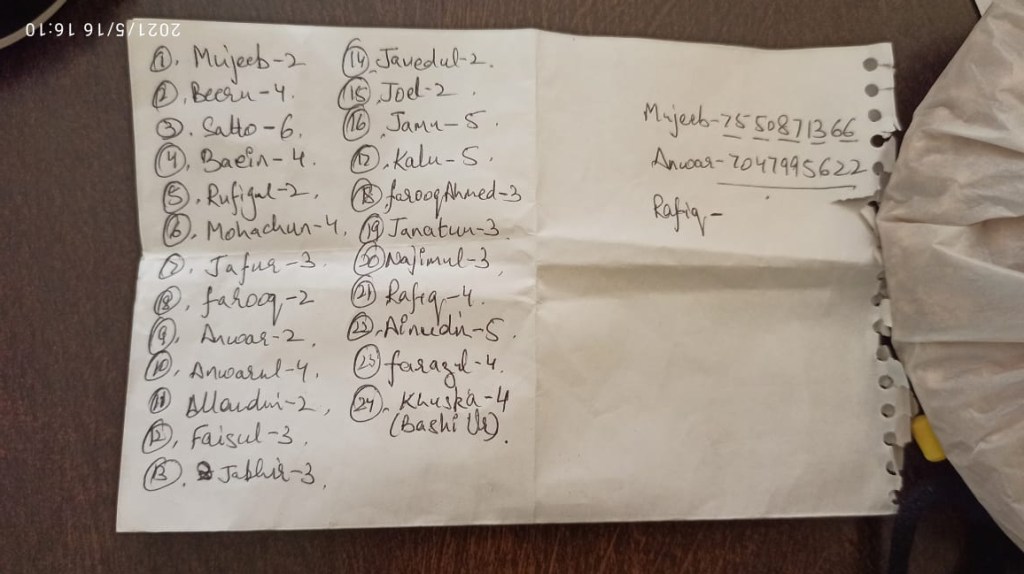 2021/5/16 16:10
1. Mujeeb-2
2. Beeru-4.
3. Satto-6.
4. Baein-4.
5. Rufiqul-2.
6. Mohachun-4.
7. Jafur-3
8. farooq-2
9. Anwar-2.
10. Anwarul-4.
11 Allaudin-2,
12. Faisul-3.
13. Jabhir-3.
14. Javedul-2.
15. Joel-2.
16. Jamu-5.
17. Kalu-5.
18. farooqAhmed-3
19. Janatun-3.
20. Najimul-3,
21. Rafiq-4.
Ainudin-5.
farazul-4.
24. Khuska-4
Mujeeb-7550871366
Anwar-7047995622
Rafiq-